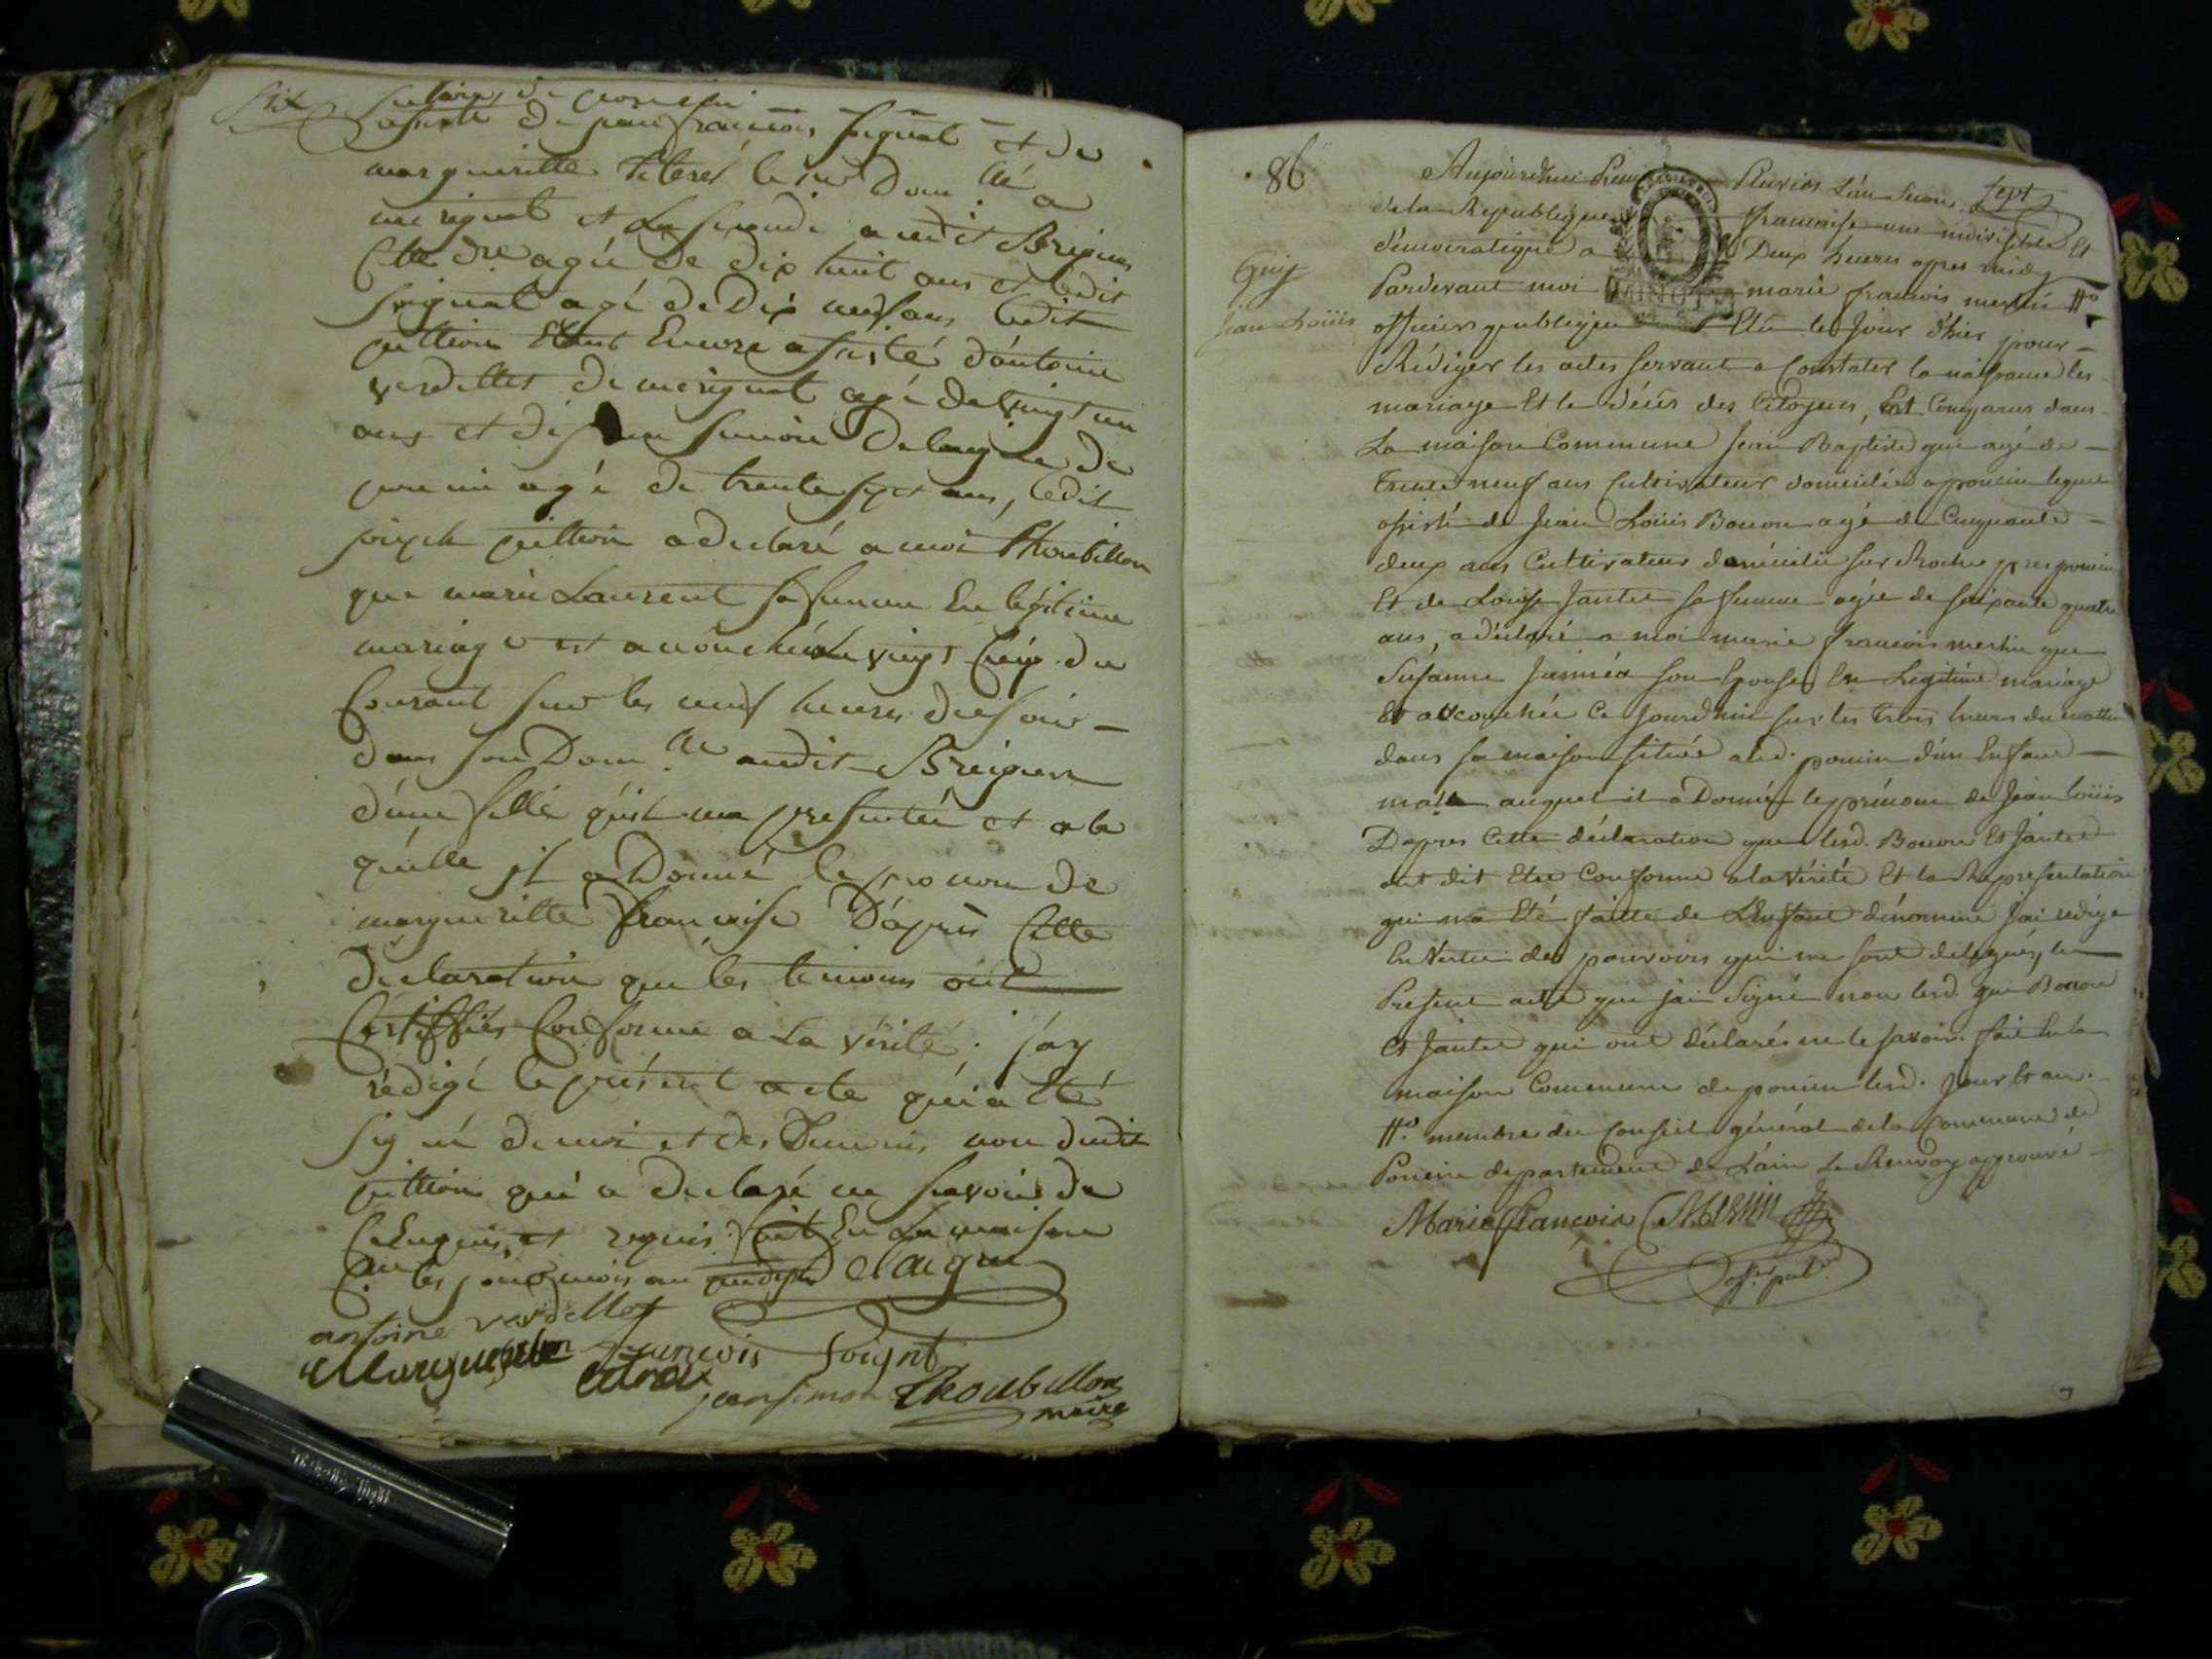 Six
assisté de jean françois soignat et de
margueritte la
et la seconde audit Breignes
agée de dix huit ans et ledit
soignat agé de Dix neuf ans ledit
juttion Etant Encore assisté d'antoine
verdellet de merignat agé de vingt un
ans et de jean simon Delaigue de
poncin agé de trente sept ans, ledit
joseph juttion a declaré a moi Thoubillon
que marie Laurent sa femme En légitime
mariage est accouchée le vingt Cinq du
Courant sur les neuf heures du soir
dans son Dom.lle audit Breignes
d'une fille qu'il ma presentée et a la
quelle il a Donné le prenom de
margueritte francoise D'après Cette
declaration que les temoins ont
Certiffiés Conforme a La vérité. j'ay
rédigé le présent acte qui a Eté
signé de moi et des Temoins non dudit
juttion qui a declaré ne savoir de
Ce Enquis et requis. fait En La maison
C.ne les jour mois an Delaigue
antoine verdellet
françois soignt
jean simon Thoubillon
maire
86
Sept
Guy
Jean Loüis
Aujourdhui Premier Pluvios L'an Second
de la Republique francaise une indivisible Et
démocratique a Deux heures apres midy
Pardevant moi marie francois merlin #°
officier publique Elu le Jour d'hier pour
Rédiger les actes servant a Constater la naissance les
mariage Et le décès des Citoyens, Est Comparus dans
La maison Commune Jean Baptiste gui agé de
Trente neuf ans Cultivateur domicilié a poncin lequel
assisté de Jean Loüis Bouon agé de Cinquante
deux ans Cultivateur domicilié sur Roche pres poncin
Et de Louise Jantet sa femme agée de soixante quatre
ans, a déclaré a moi marie francois merlin que
Susanne Janinéa son Epouse En Legitime mariage
Est accouchée Ce Jourdhui sur les Trois heures du mattin
dans sa maison située aud. poncin d'un Enfant
male auquel il a Donné le prénom de Jean Loüis
D'apres Cette déclaration que lesd. Bouon Et Jantet
ont dit Etre Conforme a la vérité Et la Representation
qui m'a Eté faitte de L'Enfant dénommé J'ai redigé
En Vertu des pouvoirs qui me sont delegués, le
Present acte que j'ai Signé non lesd. gui Bouon
Et Jantet qui ont déclarés ne le savoir. fait En la
maison Commune de poncin lesd. Jour Et an.
#° membre du Conseil général de la Commune de
Poncin departement de L'ain Le Renvoy approuvé
Marie François Merlin
off.er pub.c